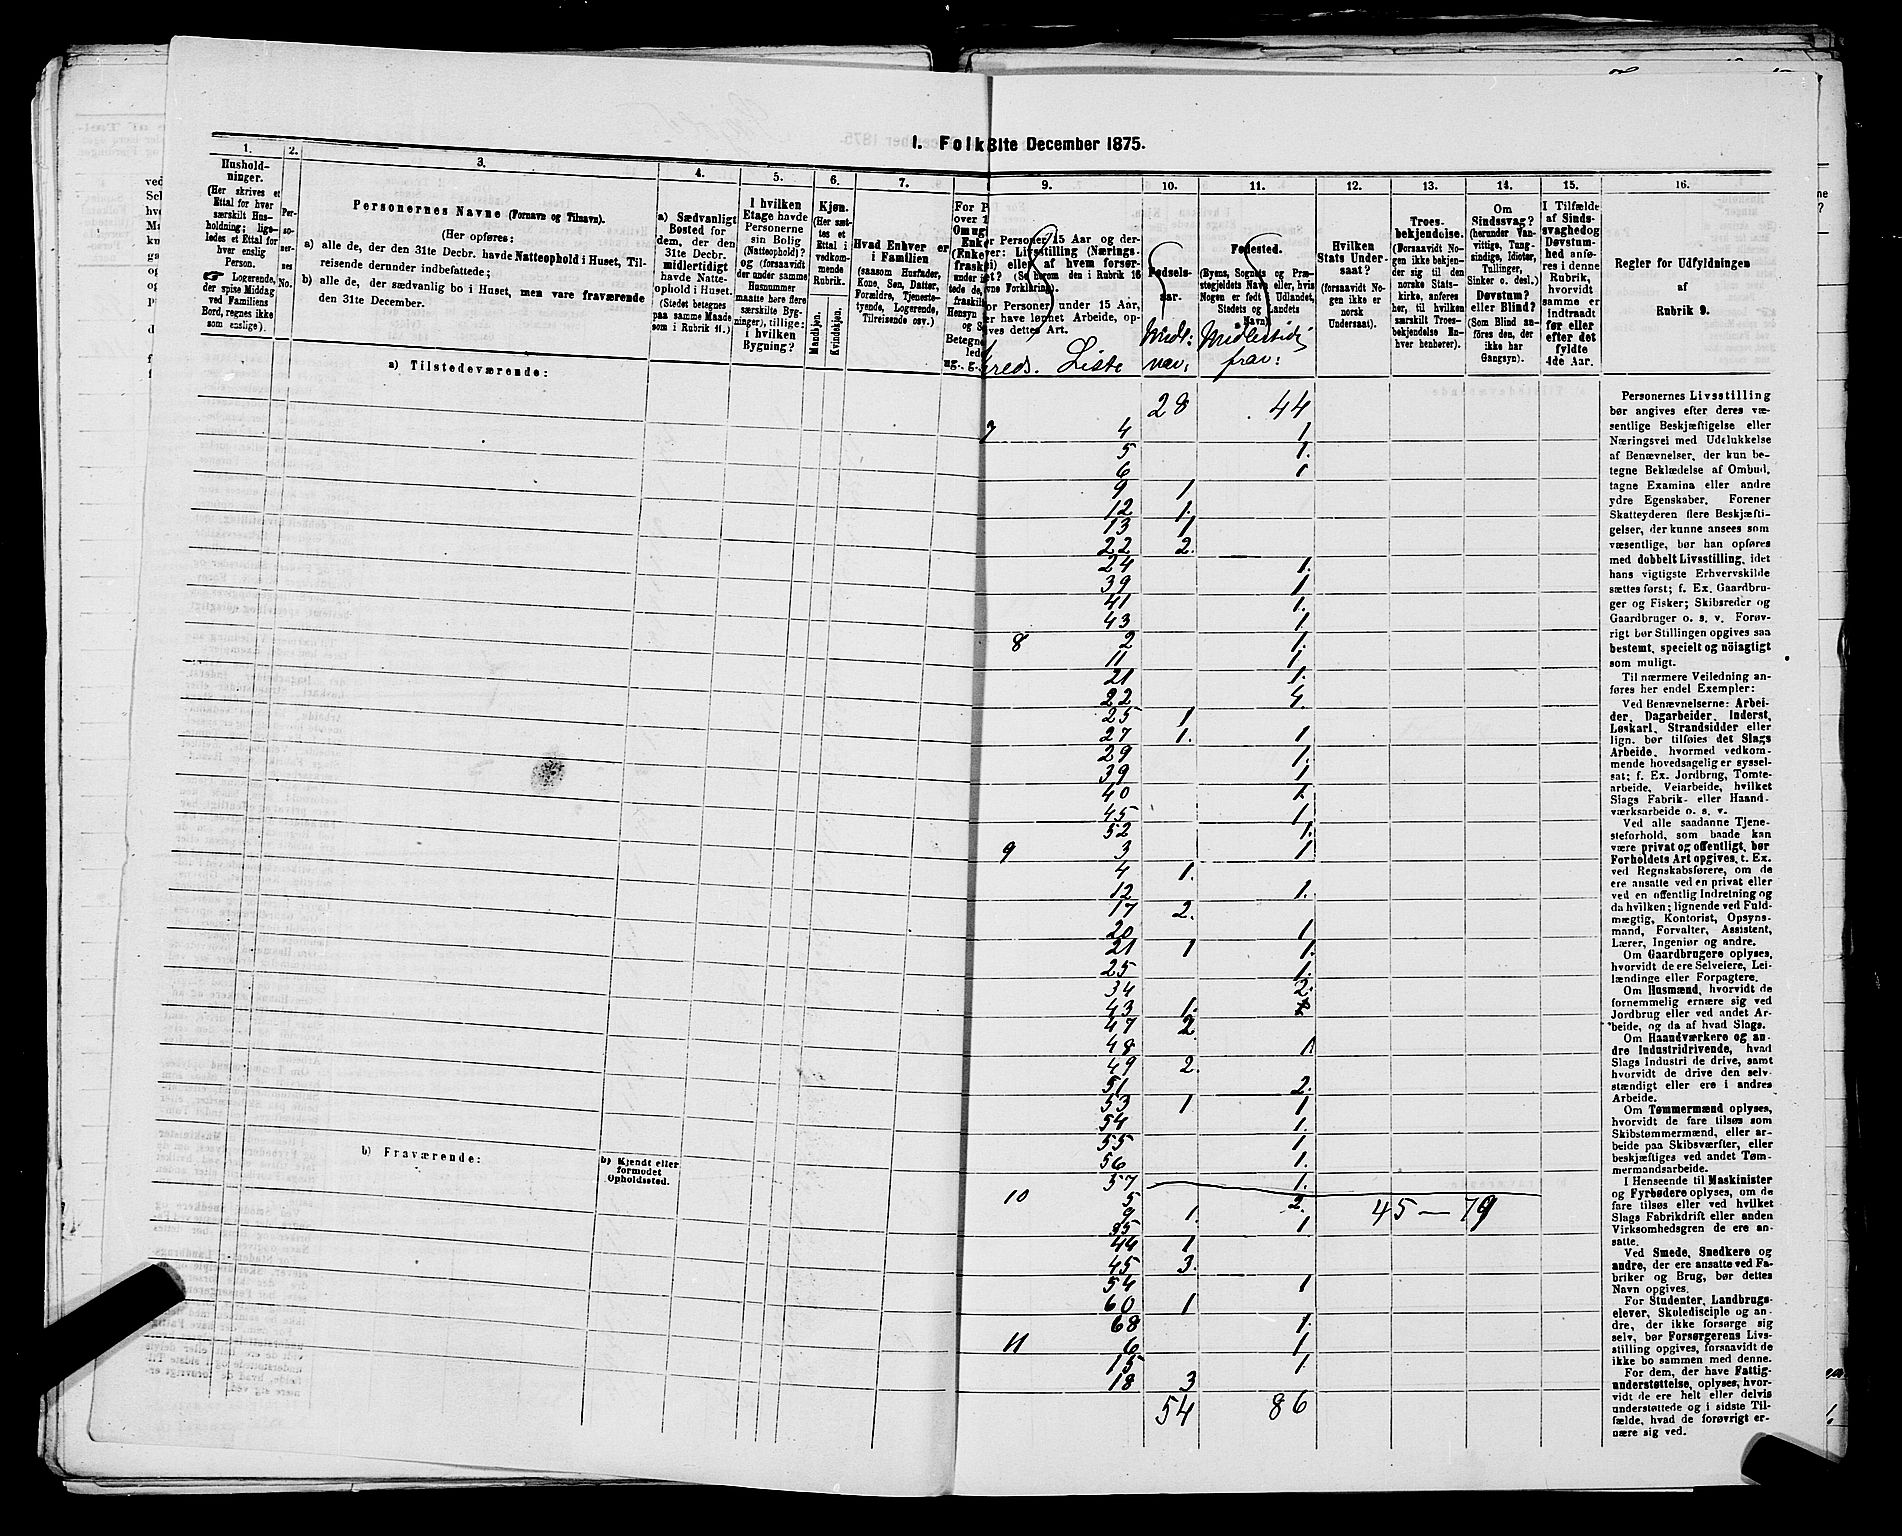 I. Folk
3lte December 1875.
1.
2.
3.
4.
5.
6.
7.
9.
10.
11.
12.
13.
14.
15.
16.
Hushold-
ninger.
(Her skrives et
Ettal for hver
særskilt Hus-
holdning; lige-
ledes et Ettal for
hver enslig
Person.
Logerende,
der spise Middag
ved Familiens
Bord, regnes ikke
som enslige).
Per-
so-
ner-
nes
No.
Personernes Navne (Fornavn og Tilnavn).
(Her opføres:
a) alle de, der den 31te Decbr. havde Natteophold i Huset, Til-
reisende derunder indbefattede;
b) alle de, der sædvanlig bo i Huset, men vare fraværende
den 31te December.
a) Sædvanligt
Bosted for
dem, der den
31te Decbr.
midlertidigt
havde Natte-
ophold i Huset.
(Stedet betegnes
paa samme Maade
som i Rubrik 11.)
I hvilken
Etage havde
Personerne
sin Bolig
(Natteophold)?
og (forsaavidt
der under samme
Husnummer
maatte høre flere
særskilte Byg-
ninger), tillige:
i hvilken
Bygning?
Kjøn.
(Her sæt-
tes et
Ettal i
vedkom-
mende
Rubrik.
Mandkjøn.
Kvindekjøn.
Hvad Enhver er
i Familien
(saasom Husfader,
Kone, Søn, Datter,
Forældre, Tjeneste-
tyende, Logerende,
Tilreisende osv.)
For P
over 1
Omug
Enke
(Enke
frask
under
tede de,
fraskil
Hensyn
og S
Betegne
lede
ug., g.,
er Personer 15 Aar og der-
ver: Livsstilling (Nærings-
ei) eller af hvem forsør-
get. (Se herom den i Rubrik 16
givne Forklaring).
or Personer under 15 Aar,
er have lønnet Arbeide, op-
gives dettes Art.
Fødsels-
aar.
Fødested.
(Byens, Sognets og Præ-
stegjeldets Navn eller, hvis
Nogen er født i Udlandet,
Stedets og Landets
Navn).
Hvilken
Stats Under-
saat?
(forsaavidt No-
gen ikke er
norsk
Undersaat).
Troes-
bekjendelse.
(Forsaavidt No-
gen ikke bekjen-
der sig til den
norske Stats-
kirke, anføres
her, til hvilken
særskilt Troes-
bekjendelse En-
hver henhører).
Om
Sindssvag?
(herunder Van-
vittige, Tung-
sindige, Idioter,
Tullinger,
Sinker o. desl.)
Døvstum?
eller Blind?
(Som Blind an-
føres den, der
ikke har
Gangsyn).
I Tilfælde
af Sinds-
svaghed og
Døvstum-
hed anfø-
res i denne
Rubrik,
hvorvidt
samme er
indtraadt
før eller
efter det
fyldte
4de Aar.
Regler for Udfyldningen
af
Rubrik 9.
a) Tilstedeværende:
Kreds. Liste
Midl: vær:
Midlertidig fravr:
28 44
7 4 1
5 1.
6 1
9 1
12 1.
13 1
22 2.
24 1.
39 1
41 1.
43 1.
8 2 1.
11 1.
21 1.
22 4.
25 1
27 1. 1
29 1.
39 1
40 1.
45 1
52 1.
9 3 1
4 1.
12 1.
17 2.
20 1
21 1 1.
25 1.
34 2.
43 1.
47 2
48 1.
49 2.
51 2.
53 1 1
54 1.
55 1
56 1.
57 1.
10 5 2.
9 1. 45 — 79
35 1
44 1
45 3.
54 1
60 1
68 1.
11 6 1
15 1.
18 3
54 86
b) Fraværende:
b) Kjendt eller
formodet
Opholdssted.
Personernes Livsstilling
bør angives efter deres væ-
sentlige Beskjæftigelse eller
Næringsvei med Udelukkelse
af Benævnelser, der kun be-
tegne Beklædelse af Ombud,
tagne Examina eller andre
ydre Egenskaber. Forener
Skatteyderen flere Beskjæfti-
gelser, der kunne ansees som
væsentlige, bør han opføres
med dobbelt Livsstilling, idet
hans vigtigste Erhvervskilde
sættes først; f. Ex. Gaardbru-
ger og Fisker; Skibsreder og
Gaardbruger o. s. v. Forøv-
rigt bør Stillingen opgives saa
bestemt, specielt og nöiagtigt
som muligt.
Til nærmere Veiledning an-
føres her endel Exempler:
Ved Benævnelserne: Arbei-
der, Dagarbeider, Inderst,
Løskarl, Strandsidder eller
lign. bør tilføies det Slags
Arbeide, hvormed vedkom-
mende hovedsagelig er syssel-
sat; f. Ex. Jordbrug, Tomte-
arbeide, Veiarbeide, hvilket
Slags Fabrik- eller Haand-
værksarbeide o. s. v.
Ved alle saadanne Tjene-
steforhold, som baade kan
være privat og offentligt, bør
Forholdets Art opgives, t. Ex.
ved Regnskabsførere, om de
ere ansatte ved en privat eller
ved en offentlig Indretning og
da hvilken; lignende ved Fuld-
mægtig, Kontorist, Opsyns-
mand, Forvalter, Assistent,
Lærer, Ingeniør og andre.
Om Gaardbrugere oplyses,
hvorvidt de ere Selveiere, Lei-
lændinge eller Forpagtere.
Om Husmænd, hvorvidt de
fornemmelig ernære sig ved
Jordbrug eller ved andet Ar-
beide, og da af hvad Slags.
Om Haandværkere og an-
dre Industridrivende, hvad
Slags Industri de drive, samt
hvorvidt de drive den selv-
stændigt eller ere i andres
Arbeide.
Om Tømmermænd oplyses,
hvorvidt de fare tilsøs som
Skibstømmermænd, eller ar-
beide paa Skibsværfter, eller
beskjæftiges ved andet Tøm-
mermandsarbeide.
I Henseende til Maskinister
og Fyrbødere oplyses, om de
fare tilsøs eller ved hvilket
Slags Fabrikdrift eller anden
Virksomhedsgren de ere an-
satte.
Ved Smede, Snedkere og
andre, der ere ansatte ved Fa-
briker og Brug, bør dettes
Navn opgives.
For Studenter, Landbrugs-
elever, Skoledisciple og an-
dre, der ikke forsørge sig
selv, bør Forsørgerens Livs-
stilling opgives, forsaavidt de
ikke bo sammen med denne.
For dem, der have Fattig-
understøttelse, oplyses, hvor-
vidt de ere helt eller delvis
understøttede og i sidste Til-
fælde, hvad de forøvrigt er-
nære sig ved.